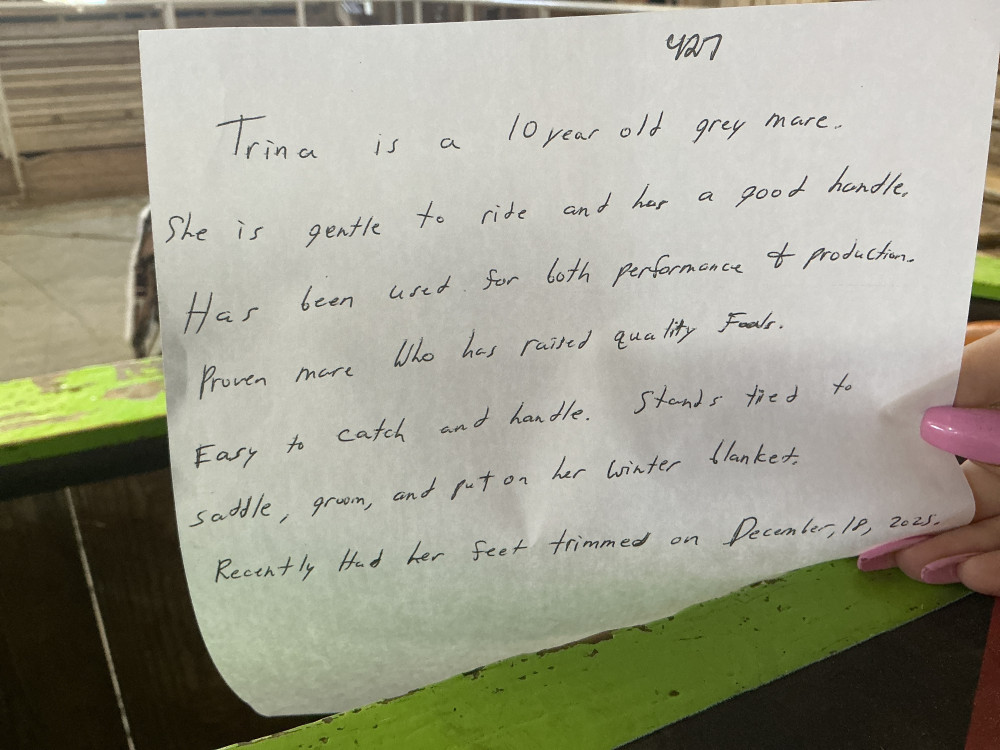 427
Trina is a 10 year old grey mare.
She is gentle to ride and has a good handle.
Has been used for both performance & production.
Proven mare Who has raised quality Foals.
Easy to catch and handle. Stands tied to
saddle, groom, and put on her winter blanket.
Recently Had her feet trimmed on December, 18, 2025.